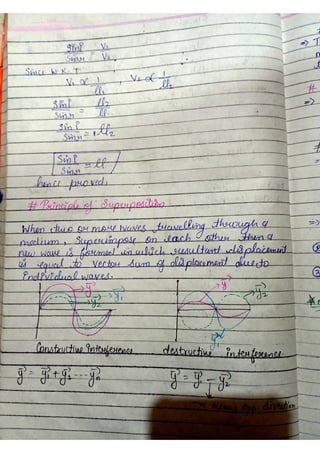 Sini V1
Sinr = V2
Since W.K.T
V1 ∝ 1/μ1 , V2 ∝ 1/μ2
Sini μ2
Sinr = μ1
Sini
Sinr = 1μ2
Sini
Sinr = μ
hence proved,
# Principle of Superposition
When two or more waves travelling through a
medium, Superimpose on each other then a
new wave is formed in which resultant displacement
is equal to vector sum of displacement due to
individual waves.
y y1 y2
y y2
y1
Constructive interference destructive interference
y = y1 + y2 ---- yn y = y - y2
means opp. direction